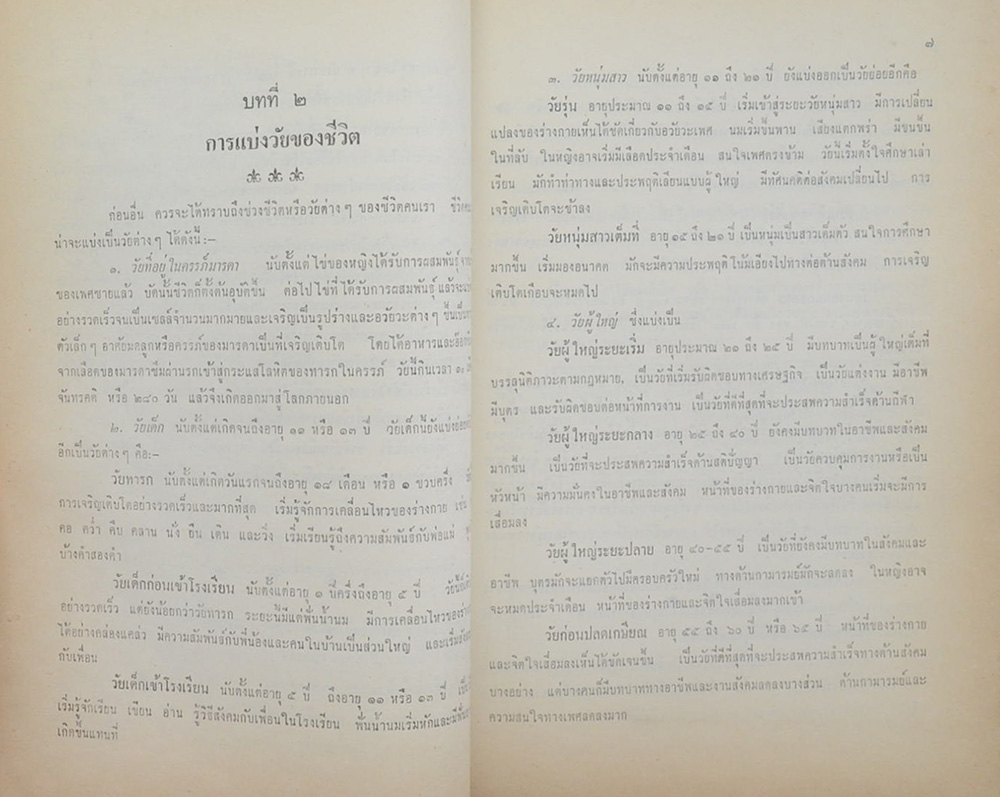 บทที่ ๒
การแบ่งวัยของชีวิต
ก่อนอื่น ควรจะได้ทราบถึงช่วงชีวิตหรือวัยต่าง ๆ ของชีวิตคนเรา
น่าจะแบ่งเป็นวัยต่าง ๆ ได้ดังนี้ :–
๑. วัยที่อยู่ในครรภ์มารดา นับตั้งแต่ไข่ของหญิงได้รับการผสมพันธุ์
ของเพศชายแล้ว บัดนั้นชีวิตก็ตั้งต้นอุบัติขึ้น ต่อไปไข่ที่ได้รับการผสมพันธุ์แล้วจะ
อย่างรวดเร็วจนเป็นเซลล์จำนวนมากมายและเจริญเป็นรูปร่างและอวัยวะต่าง ๆ ขึ้นเป็น
ตัวเล็ก ๆ อาศัยมดลูกหรือครรภ์ของมารดาเป็นที่เจริญเติบโต โดยได้อาหารและ
จากเลือดของมารดาซึมผ่านรกเข้าสู่กระแสโลหิตของทารกในครรภ์ วัยนี้กินเวลา ๑๐
จันทรคติ หรือ ๒๘๐ วัน แล้วจึงเกิดออกมาสู่โลกภายนอก
๒. วัยเด็ก นับตั้งแต่เกิดจนถึงอายุ ๑๑ หรือ ๑๓ ปี วัยเด็กนี้ยังแบ่ง
อีกเป็นวัยต่าง ๆ คือ:–
วัยทารก นับตั้งแต่เกิดวันแรกจนถึงอายุ ๑๘ เดือน หรือ ๑ ขวบครึ่ง
การเจริญเติบโตอย่างรวดเร็วและมากที่สุด เริ่มรู้จักการเคลื่อนไหวของร่างกาย เช่น
คอ คว่ำ คืบ คลาน นั่ง ยืน เดิน และวิ่ง เริ่มเรียนรู้ถึงความสัมพันธ์กับพ่อแม่
บ้างคำสองคำ
วัยเด็กก่อนเข้าโรงเรียน นับตั้งแต่อายุ ๑ ปีครึ่งถึงอายุ ๕ ปี
อย่างรวดเร็ว แต่ยังน้อยกว่าวัยทารก ระยะนี้มีแต่ฟันน้ำนม มีการเคลื่อนไหวของ
ได้อย่างคล่องแคล่ว มีความสัมพันธ์กับพี่น้องและคนในบ้านเป็นส่วนใหญ่ และเริ่ม
กับเพื่อน
วัยเด็กเข้าโรงเรียน นับตั้งแต่อายุ ๕ ปี ถึงอายุ ๑๑ หรือ ๑๓ ปี
เริ่มรู้จักเรียน เขียน อ่าน รู้วิธีสังคมกับเพื่อนในโรงเรียน ฟันน้ำนมเริ่มหักและ
เกิดขึ้นแทนที่
๗
๓. วัยหนุ่มสาว นับตั้งแต่อายุ ๑๑ ถึง ๒๑ ปี ยังแบ่งออกเป็นวัยย่อยอีกคือ
วัยรุ่น อายุประมาณ ๑๑ ถึง ๑๕ ปี เริ่มเข้าสู่ระยะวัยหนุ่มสาว มีการเปลี่ยน
แปลงของร่างกายเห็นได้ชัดเกี่ยวกับอวัยวะเพศ นมเริ่มขึ้นพาน เสียงแตกพร่า มีขนขึ้น
ในที่ลับ ในหญิงอาจเริ่มมีเลือดประจำเดือน สนใจเพศตรงข้าม วัยนี้เริ่มตั้งใจศึกษาเล่า
เรียน มักทำท่าทางและประพฤติเลียนแบบผู้ใหญ่ มีทัศนคติต่อสังคมเปลี่ยนไป การ
เจริญเติบโตจะช้าลง
วัยหนุ่มสาวเต็มที่ อายุ ๑๕ ถึง ๒๑ ปี เป็นหนุ่มเป็นสาวเต็มตัว สนใจการศึกษา
มากขึ้น เริ่มมองอนาคต มักจะมีความประพฤติโน้มเอียงไปทางต่อต้านสังคม การเจริญ
เติบโตเกือบจะหมดไป
๔. วัยผู้ใหญ่ ซึ่งแบ่งเป็น
วัยผู้ใหญ่ระยะเริ่ม อายุประมาณ ๒๑ ถึง ๒๕ ปี มีบทบาทเป็นผู้ใหญ่เต็มที่
บรรลุนิติภาวะตามกฎหมาย, เป็นวัยที่เริ่มรับผิดชอบทางเศรษฐกิจ เป็นวัยแต่งงาน มีอาชีพ
มีบุตร และรับผิดชอบต่อหน้าที่การงาน เป็นวัยที่ดีที่สุดที่จะประสพความสำเร็จด้านกีฬา
วัยผู้ใหญ่ระยะกลาง อายุ ๒๕ ถึง ๔๐ ปี ยังคงมีบทบาทในอาชีพและสังคม
มากขึ้น เป็นวัยที่จะประสพความสำเร็จด้านสติปัญญา เป็นวัยควบคุมการงานหรือเป็น
หัวหน้า มีความมั่นคงในอาชีพและสังคม หน้าที่ของร่างกายและจิตใจบางคนเริ่มจะมีการ
เสื่อมลง
วัยผู้ใหญ่ระยะปลาย อายุ ๔๐-๕๕ ปี เป็นวัยที่ยังคงมีบทบาทในสังคมและ
อาชีพ บุตรมักจะแยกตัวไปมีครอบครัวใหม่ ทางด้านกามารมย์มักจะลดลง ในหญิงอาจ
จะหมดประจำเดือน หน้าที่ของร่างกายและจิตใจเสื่อมลงมากเข้า
วัยก่อนปลดเกษียณ อายุ ๕๕ ถึง ๖๐ ปี หรือ ๖๕ ปี หน้าที่ของร่างกาย
และจิตใจเสื่อมลงเห็นได้ชัดเจนขึ้น เป็นวัยที่ดีที่สุดที่จะประสพความสำเร็จทางด้านสังคม
บางอย่าง แต่บางคนก็มีบทบาททางอาชีพและงานสังคมลดลงบางส่วน ด้านกามารมย์และ
ความสนใจทางเพศลดลงมาก